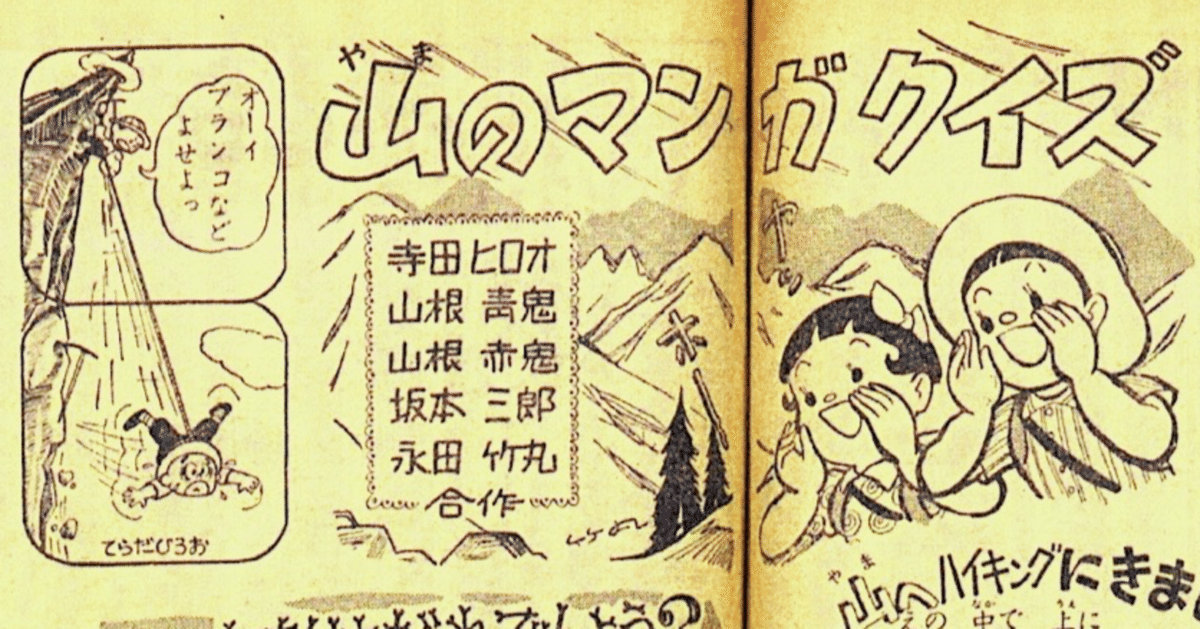 山のマンガクイズ
やま
オーイ
ブランコなど
よせよっ
てらだひろお
寺田ヒロオ
山根 青鬼
山根 赤鬼
坂本 三郎
永田 竹丸
合作
ヤッ
ホー
やま
山へハイキングにきま